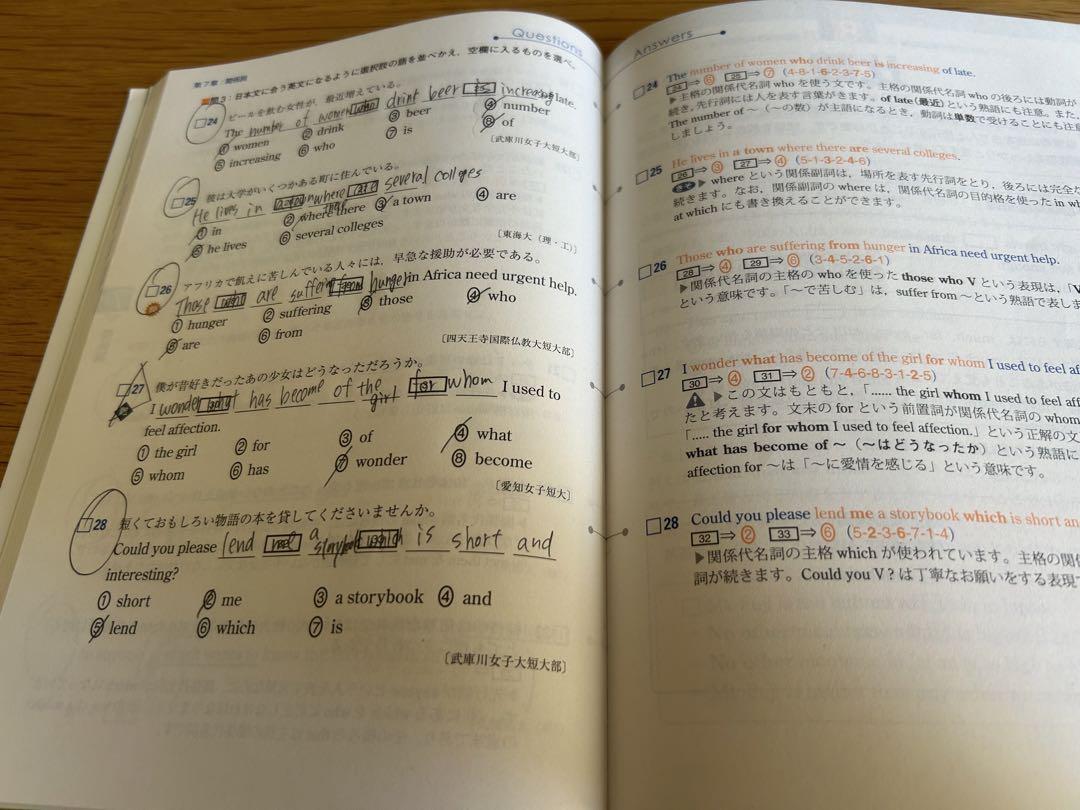 Questions
第7章:関係詞
問3:日本文に合う英文になるように選択肢の語を並べかえ，空欄に入るものを選べ。
24 ビールを飲む女性が，最近増えている。
The number of women who drink beer is increasing of late.
① women ② drink ③ beer ④ number
⑤ increasing ⑥ who ⑦ is ⑧ of
〔武庫川女子大短大部〕
25 彼は大学がいくつかある町に住んでいる。
He lives in a town where there are several colleges
① in ② where there ③ a town ④ are
⑤ he lives ⑥ several colleges
〔東海大（理・工）〕
26 アフリカで飢えに苦しんでいる人々には，早急な援助が必要である。
Those who are suffering from hunger in Africa need urgent help.
① hunger ② suffering ③ those ④ who
⑤ are ⑥ from
〔四天王寺国際仏教大短大部〕
27 僕が昔好きだったあの少女はどうなっただろうか。
I wonder what has become of the girl for whom I used to
feel affection.
① the girl ② for ③ of ④ what
⑤ whom ⑥ has ⑦ wonder ⑧ become
〔愛知女子短大〕
28 短くておもしろい物語の本を貸してくださいませんか。
Could you please lend me a storybook which is short and
interesting?
① short ② me ③ a storybook ④ and
⑤ lend ⑥ which ⑦ is
〔武庫川女子大短大部〕
Answers
24 The number of women who drink beer is increasing of late.
24 ⇒ ⑥ 25 ⇒ ⑦ (4-8-1-6-2-3-7-5)
▶主格の関係代名詞 who を使う文です。主格の関係代名詞 who の後ろには動詞が
続き，先行詞には人を表す言葉がきます。of late(最近)という熟語にも注意。また，
The number of ～（～の数）が主語になるとき，動詞は単数で受けることにも注意
しましょう。
25 He lives in a town where there are several colleges.
26 ⇒ ③ 27 ⇒ ④ (5-1-3-2-4-6)
▶ where という関係副詞は，場所を表す先行詞をとり，後ろには完全な
続きます。なお，関係副詞の where は，関係代名詞の目的格を使った in w
at which にも書き換えることができます。
26 Those who are suffering from hunger in Africa need urgent help.
28 ⇒ ④ 29 ⇒ ⑥ (3-4-5-2-6-1)
▶関係代名詞の主格の who を使った those who V という表現は，「V
という意味です。「～で苦しむ」は，suffer from ～という熟語で表しま
27 I wonder what has become of the girl for whom I used to feel af
30 ⇒ ④ 31 ⇒ ② (7-4-6-8-3-1-2-5)
▶この文はもともと，「...... the girl whom I used to feel affec
たと考えます。文末の for という前置詞が関係代名詞の whom
「..... the girl for whom I used to feel affection.」という正解の文
what has become of ～（～はどうなったか）という熟語に
affection for ～は「～に愛情を感じる」という意味です。
28 Could you please lend me a storybook which is short an
32 ⇒ ② 33 ⇒ ⑥ (5-2-3-6-7-1-4)
▶関係代名詞の主格 which が使われています。主格の関
詞が続きます。Could you V？は丁寧なお願いをする表現